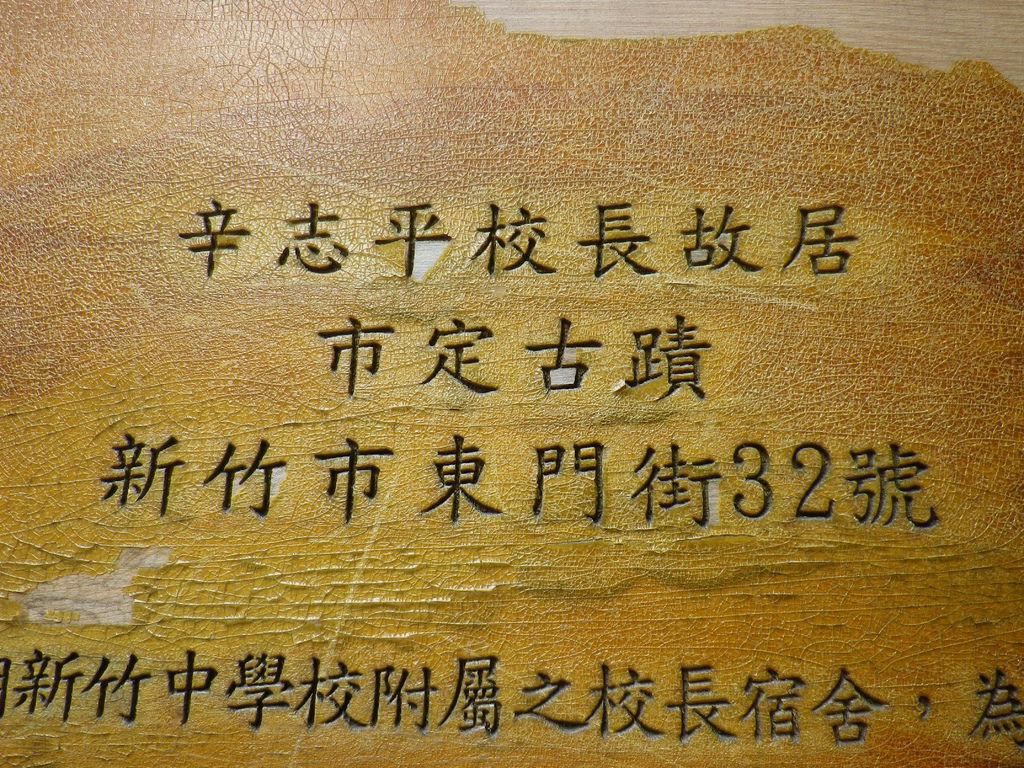 辛志平校長故居
市定古蹟
新竹市東門街32號
新竹中學校附屬之校長宿舍，為